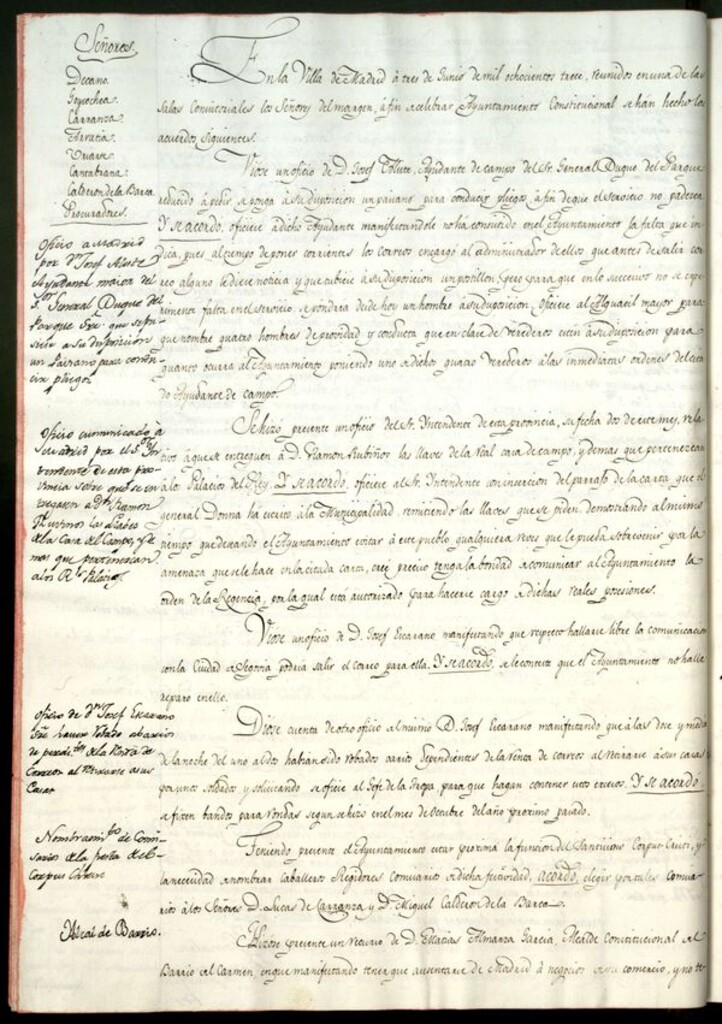 Señores.
Decano.
Goycochea.
Carranza.
Yruegas.
Uriarte.
Cantabrana.
Calderon de la Barca
Procuradores.
En la Villa de Madrid à tres de Junio de mil ochocientos trece, reunidos en una de las
Salas Consistoriales los Señores del margen, à fin de celebrar Ayuntamiento Constitucional se hán hecho los
acuerdos siguientes.
Oficio a Madrid
por Dn. Josef
Ayudante maior del
Sor. General Duque del
Parque Fro. que se pu-
siese a su disposicion
un Paisano para condu-
cir pliegos
Vióse un oficio de D. Josef Ayudante de campo del Sr. General Duque del Parque
reducido à pedir se ponga à su disposicion un paisano para conducir pliegos, à fin de que el servicio no padezca
Y se acordó, oficiese à dicho Ayudante manifestandole no há consistido en el Ayuntamiento la falta que in-
dica, pues al tiempo de poner corrientes los correos encargó al administrador de ellos que antes de salir cor-
reo alguno le diese noticia y que tubiese à su disposicion un postillon, pero para que en lo succesivo no se espe-
rimenta falta en el servicio, se pondria desde hoy un hombre à su disposicion, oficiese al Alguacil mayor para
que nombre quatro hombres de providad y conducta que en clase de verederos esten à su disposicion para
quanto ocurra al Ayuntamiento poniendo uno de dichos quatro verederos à las inmediatas ordenes del cita-
do Ayudante de campo.
Oficio comunicado à
Madrid por el Sr. In-
tendente de esta pro-
vincia sobre que se en-
treguen a Dn. Ramon
Rubinos las llaves
de la Casa del Campo, y de-
mas que pertenezcan
a los Rs. Palacios
Se hizo presente un oficio del Sr. Yntendente de esta provincia, su fecha dos de este mes, rela-
tivo à que se entreguen à D. Ramon Rubiños las llaves de la real casa de campo, y demas que pertenezcan
à los Palacios del Rey. Y se acordó, oficiese al Sr. Yntendente con insercion del parrafo de la carta que el
general Donna ha escrito à la Municipalidad, remitiendo las llaves que se piden, demostrando al mismo
tiempo que deseando el Ayuntamiento evitar à este pueblo qualquiera veces que le pueda sobrevenir por la
amenaza que se le hace en la citada carta, cree preciso tenga la bondad de comunicar al Ayuntamiento la
orden de la Regencia, por la qual está autorizado para hacerse cargo de dichas reales posesiones.
Vióse un oficio de D. Josef Escarano manifestando que respecto hallarse libre la comunicacion
con la Ciudad de Segovia podria salir el correo para ella. Y se acordó, se le conteste que el Ayuntamiento no halla
reparo en ello.
Oficio de Dn. Josef Escarano
Fro. haver robado a varios
de la Renta de
Correos al retirarse a sus
Casas
Dióse cuenta de otro oficio del mismo D. Josef Escarano manifestando que à las doce y media
de la noche del uno al dos habian sido robados varios Dependientes de la renta de correos al retirarse à sus casas
por unos Soldados y solicitando se oficie al Gefe de la Tropa, para que hagan contener estos excesos. Y se acordó,
se fixen bandos para rondas segun se hizo en el mes de Octubre del año proximo pasado.
Nombramto. de Comi-
sarios de la fiesta del
Corpus Christi
Teniendo presente el Ayuntamiento estar proxima la funcion del Santisimo Corpus-Cristi, y
la necesidad de nombrar Caballeros Regidores Comisarios de dicha festividad, acordó, elegir por tales Comisa-
rios à los Señores D. Lucas de Carranza y D. Miguel Calderon de la Barca.
Alcal. de Barrio.
Hizose presente un recurso de D. Matias Almanza Garcia, Alcalde Constitucional del
Barrio del Carmen, en que manifestando tener que ausentarse de Madrid à negocios de su comercio, y no te-